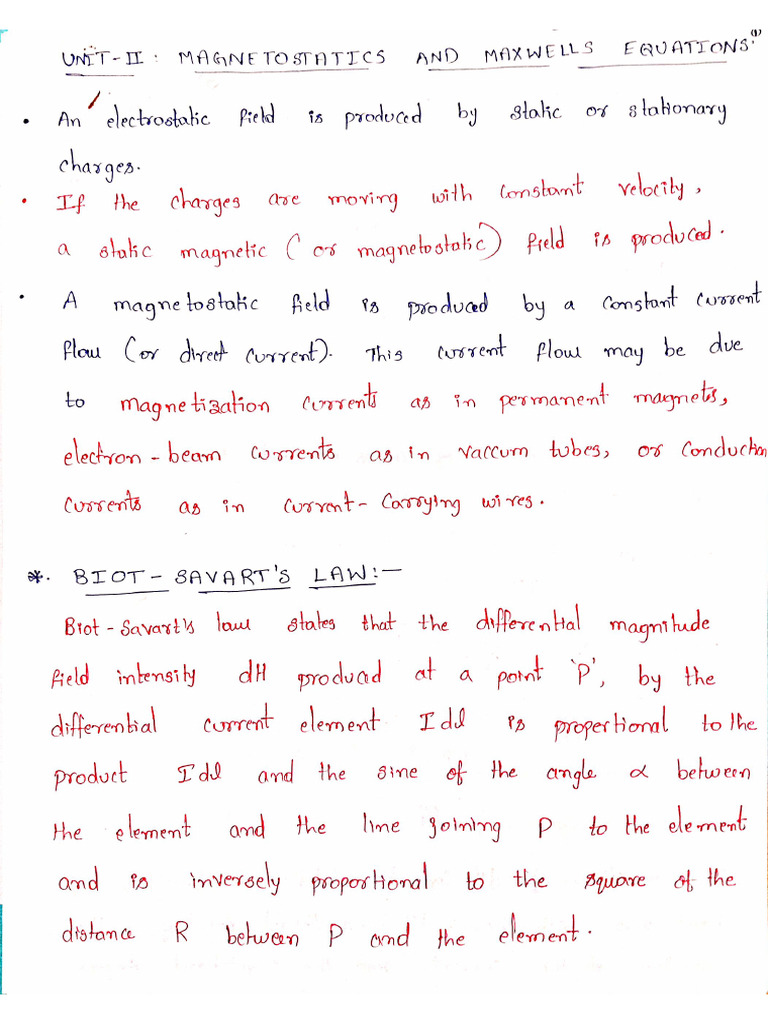 (1)
UNIT-II: MAGNETOSTATICS AND MAXWELLS EQUATIONS:
• An electrostatic field is produced by static or stationary
charges.
• If the charges are moving with constant velocity,
a static magnetic (or magnetostatic) field is produced.
• A magnetostatic field is produced by a constant current
flow (or direct current). This current flow may be due
to magnetization currents as in permanent magnets,
electron-beam currents as in vaccum tubes, or conduction
currents as in current-carrying wires.
*. BIOT-SAVART'S LAW:-
Biot-Savart's law states that the differential magnitude
field intensity dH produced at a point 'P', by the
differential current element Idl is propertional to the
product Idl and the sine of the angle α between
the element and the line joining P to the element
and is inversely proportional to the square of the
distance R between P and the element.